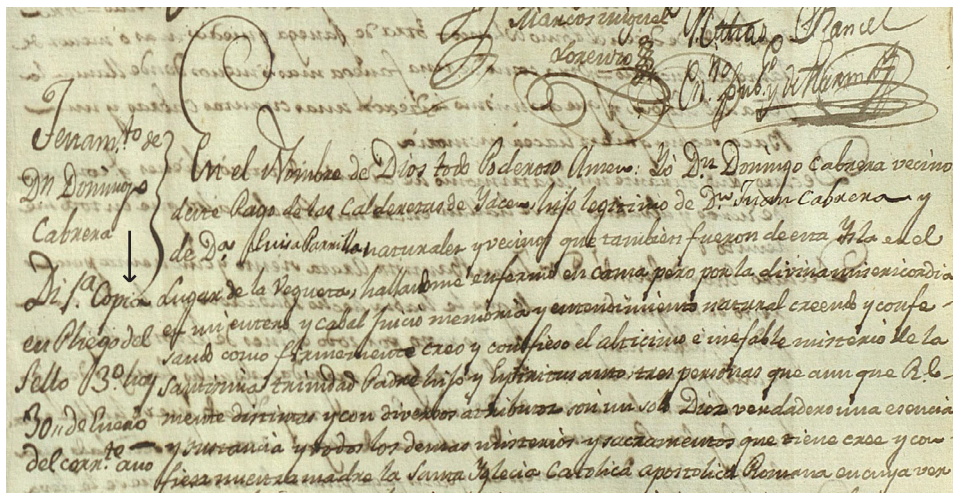 Marcos Miguel
Lorenzo
Matias Rancel
no pub.º y de Harm.
Testam.to de
Dn Domingo
Cabrera
Di 1.ª Copia
en Pliego del
sello 3.º hoy
30,, de Enero
del corr.te año
En el Nombre de Dios todo Poderoso Amen: Yo Dn. Domingo Cabrera vecino
deste Pago de las Caldereras de Yace hijo legitimo de Dn Juan Cabrera y
de D.ª Luisa Parrilla naturales y vecinos que tambien fueron de esta Ysla en el
Lugar de la Vegueta, hallandome enfermo en cama pero por la divina misericordia
en mi entero y cabal Juicio memoria y entendimiento natural creendo y confe-
sando como firmemente creo y confieso el alticimo e inefable misterio de la
Santicima trinidad Padre hijo y Espiritu santo, tres personas que aun que Rl.-
mente distintas y con diversos atributos son un solo Dios verdadero una esencia
y sustancia y todos los demas misterios y sacramentos que tiene cree y con-
fiesa nuestra madre la Santa Yglecia Catolica apostolica Romana en cuya ver